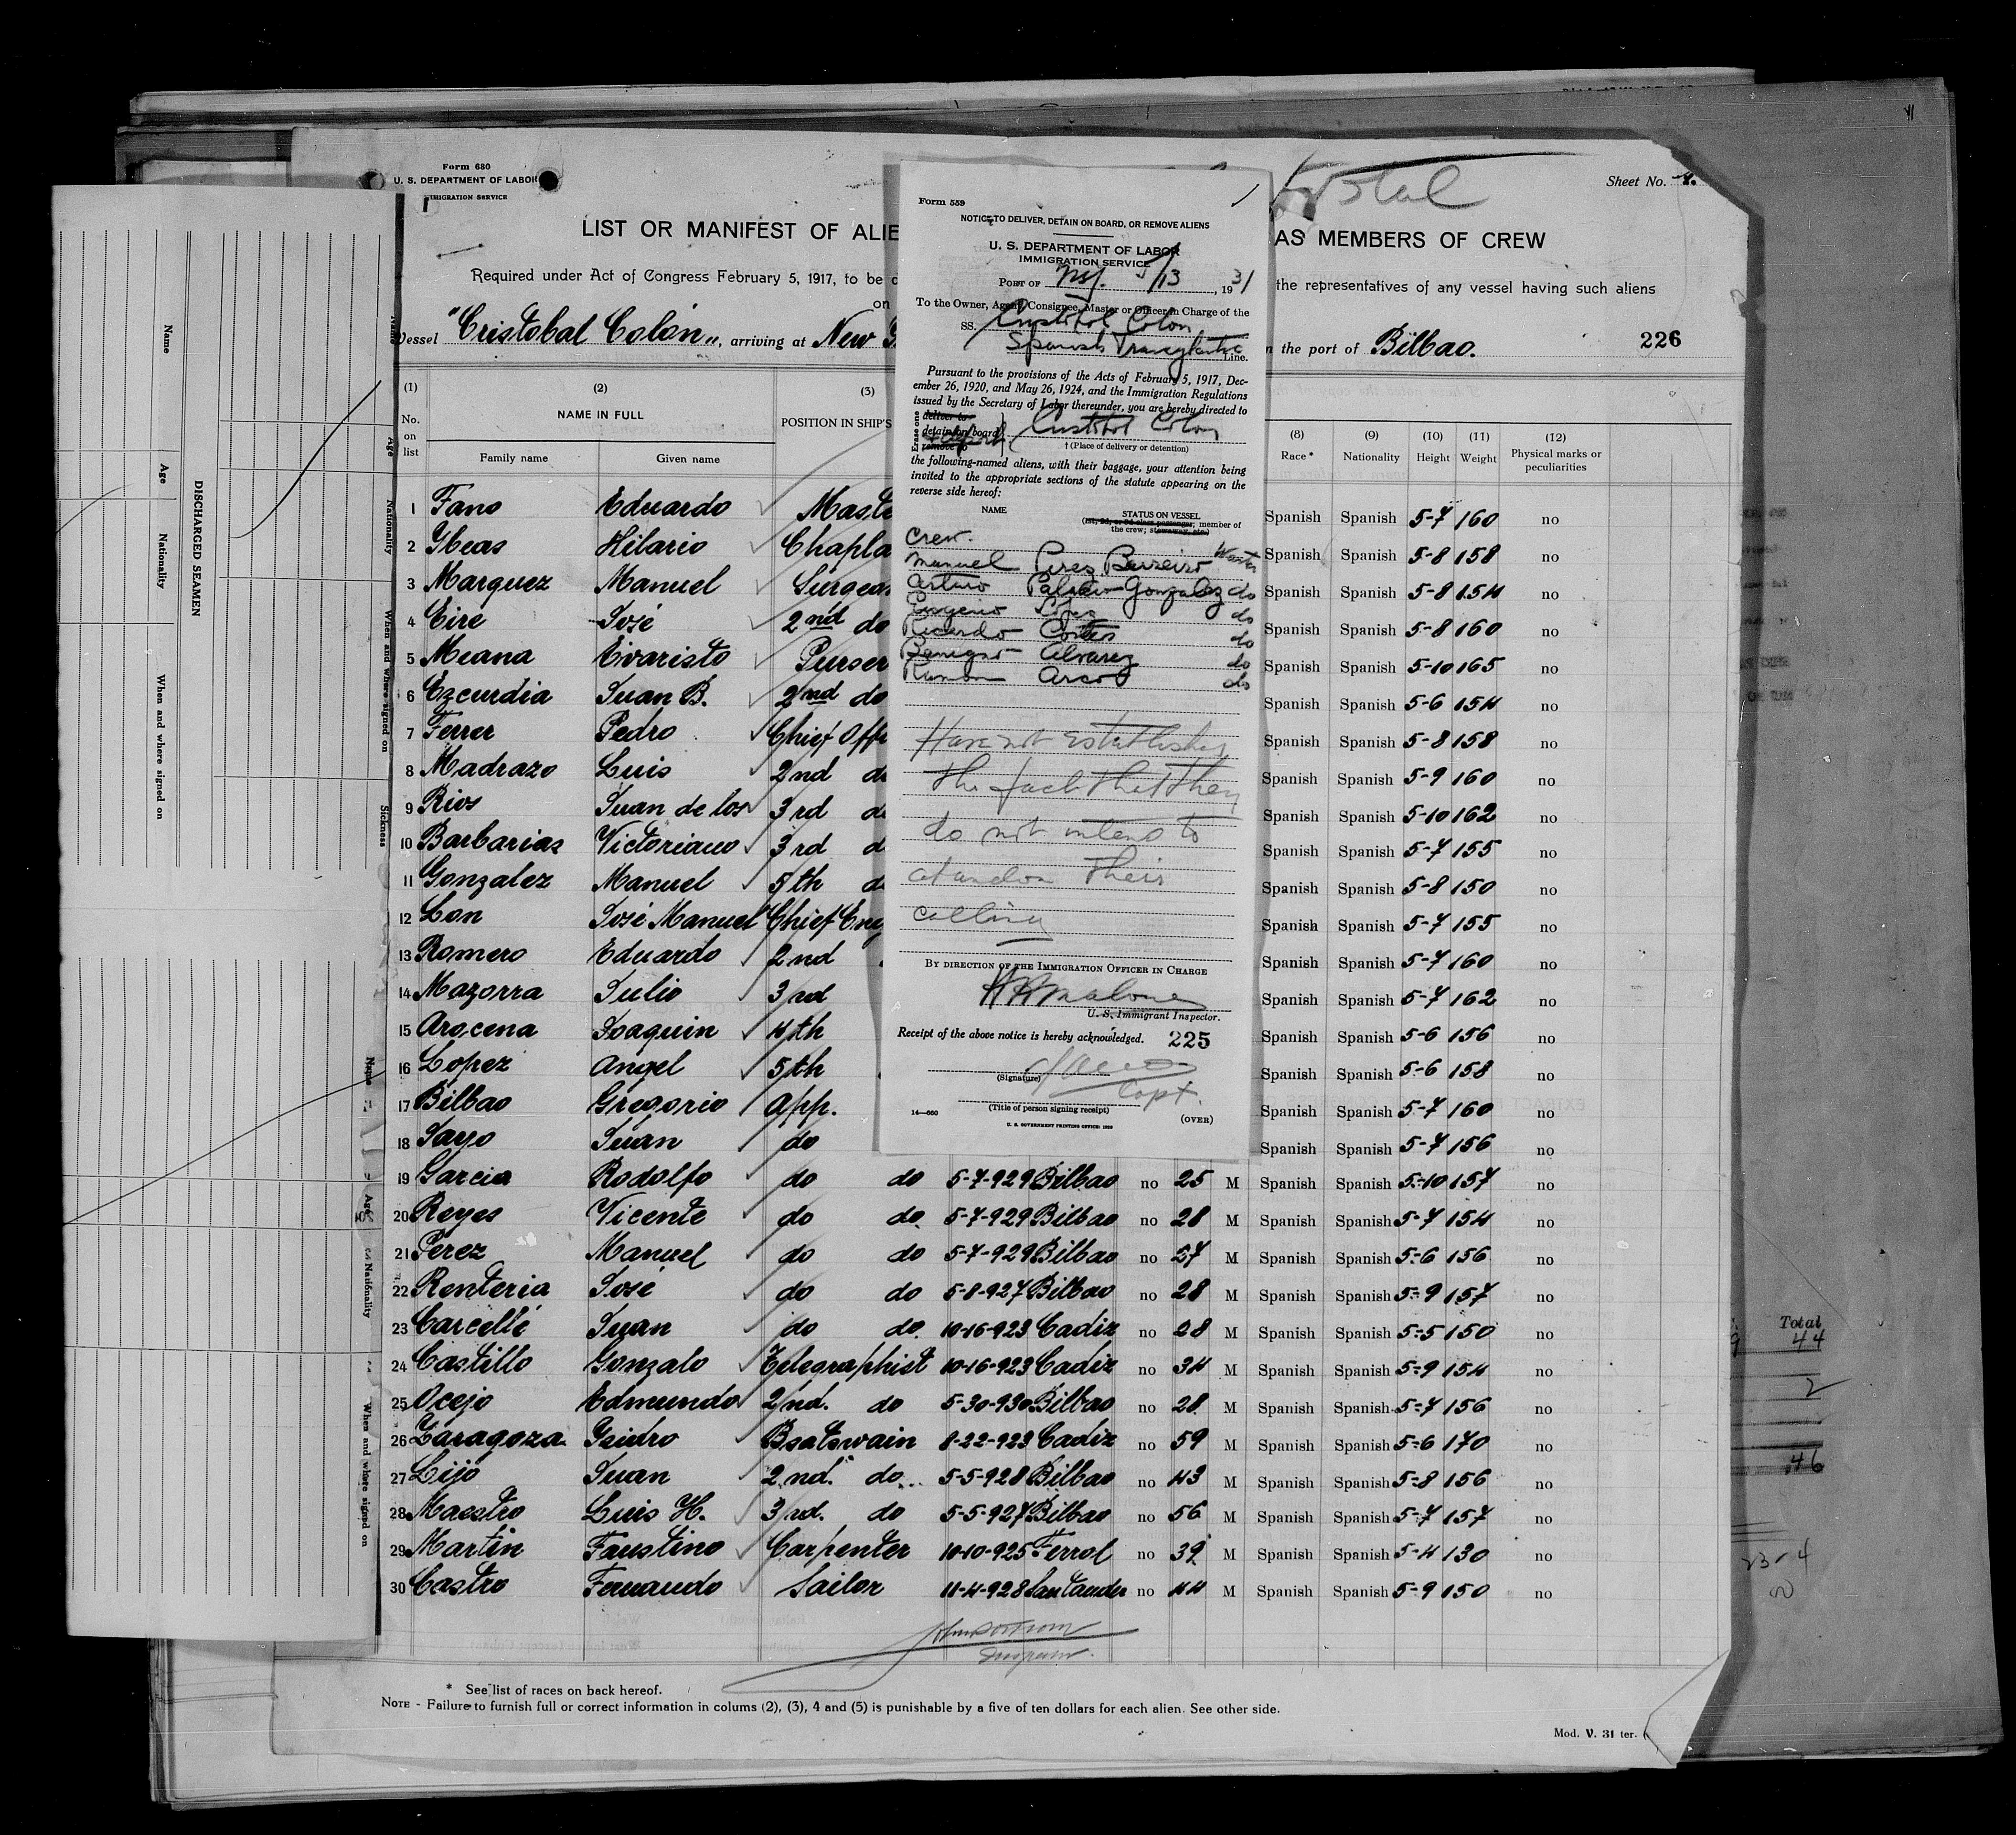 Form 680
U. S. DEPARTMENT OF LABOR
IMMIGRATION SERVICE
Sheet No.
LIST OR MANIFEST OF ALIE
AS MEMBERS OF CREW
Required under Act of Congress February 5, 1917, to be d
the representatives of any vessel having such aliens
on
Vessel "Cristobal Colón", arriving at New
the port of Bilbao.
226
(1) (2) (3) (8) (9) (10) (11) (12)
No. on list
NAME IN FULL
Family name Given name
POSITION IN SHIP'S
Race* Nationality Height Weight Physical marks or peculiarities
1 Fano Eduardo Maste Spanish Spanish 5-7 160 no
2 Ybeas Hilario Chapla Spanish Spanish 5-8 158 no
3 Marquez Manuel Surgeo Spanish Spanish 5-8 154 no
4 Eire José 2nd do Spanish Spanish 5-8 160 no
5 Meana Evaristo Purser Spanish Spanish 5-10 165 no
6 Ezcurdia Juan B. 2nd do Spanish Spanish 5-6 154 no
7 Ferrer Pedro Chief Offi Spanish Spanish 5-8 158 no
8 Madrazo Luis 2nd d Spanish Spanish 5-9 160 no
9 Rios Juan de los 3rd d Spanish Spanish 5-10 162 no
10 Barbarias Victoriano 3rd d Spanish Spanish 5-7 155 no
11 Gonzalez Manuel 5th d Spanish Spanish 5-8 150 no
12 Lon José Manuel Chief Eng Spanish Spanish 5-7 155 no
13 Romero Eduardo 2nd Spanish Spanish 5-7 160 no
14 Mazorra Julio 3rd Spanish Spanish 5-7 162 no
15 Arocena Joaquin 4th Spanish Spanish 5-6 156 no
16 Lopez Angel 5th Spanish Spanish 5-6 158 no
17 Bilbao Gregorio App. Spanish Spanish 5-7 160 no
18 Sayo Juan do Spanish Spanish 5-7 156 no
19 Garcia Rodolfo do do 5-7-929 Bilbao no 25 M Spanish Spanish 5-10 157 no
20 Reyes Vicente do do 5-7-929 Bilbao no 28 M Spanish Spanish 5-7 154 no
21 Perez Manuel do do 5-7-929 Bilbao no 27 M Spanish Spanish 5-6 156 no
22 Renteria José do do 5-8-927 Bilbao no 28 M Spanish Spanish 5-9 157 no
23 Carcellé Juan do do 10-16-923 Cadiz no 28 M Spanish Spanish 5-5 150 no
24 Castillo Gonzalo Telegraphist 10-16-923 Cadiz no 34 M Spanish Spanish 5-9 154 no
25 Ocejo Edmundo 2/nd. do 5-30-930 Bilbao no 28 M Spanish Spanish 5-7 156 no
26 Zaragoza Ysidro Boatswain 8-22-923 Cadiz no 59 M Spanish Spanish 5-6 170 no
27 Lijo Juan 2.nd. do 5-5-928 Bilbao no 43 M Spanish Spanish 5-8 156 no
28 Maestro Luis H. 3/rd. do 5-5-927 Bilbao no 56 M Spanish Spanish 5-7 157 no
29 Martin Faustino Carpenter 10-10-925 Ferrol no 39 M Spanish Spanish 5-4 130 no
30 Castro Fernando Sailor 11-4-928 Santander no 44 M Spanish Spanish 5-9 150 no
* See list of races on back hereof.
NOTE - Failure to furnish full or correct information in colums (2), (3), 4 and (5) is punishable by a five of ten dollars for each alien. See other side.
Mod. V. 31 ter.
Form 559
NOTICE TO DELIVER, DETAIN ON BOARD, OR REMOVE ALIENS
U. S. DEPARTMENT OF LABOR
IMMIGRATION SERVICE
PORT OF N.Y. 5/13, 1931
To the Owner, Agent, Consignee, Master or Officer in Charge of the
SS. Cristobal Colon
Spanish Transatlantic Line.
Pursuant to the provisions of the Acts of February 5, 1917, Dec-
ember 26, 1920, and May 26, 1924, and the Immigration Regulations
issued by the Secretary of Labor thereunder, you are hereby directed to
Erase one
deliver to
detain on board
remove to
Cristobal Colon
† (Place of delivery or detention)
the following-named aliens, with their baggage, your attention being
invited to the appropriate sections of the statute appearing on the
reverse side hereof:
NAME
STATUS ON VESSEL
(1st, 2d, or 3d class passenger; member of
the crew; stowaway, etc.)
Crew.
Manuel Perez Barreiro Waiter
Arturo Palacio Gonzalez do
Eugenio Lopez do
Ricardo Cortes do
Benigno Alvarez do
Ramon Arcos do
Have not established
the fact that they
do not intend to
abandon their
calling
BY DIRECTION OF THE IMMIGRATION OFFICER IN CHARGE
Malone
U. S. Immigrant Inspector.
Receipt of the above notice is hereby acknowledged. 225
(Signature)
Capt.
14—660
(Title of person signing receipt)
(OVER)
U. S. GOVERNMENT PRINTING OFFICE: 1929
Inspector.
DISCHARGED SEAMEN
Name
Age
Nationality
When and where signed on
Age
Nationality
When and where signed on
Sickness
Name
Age
Nationality
When and where signed on
Total
44
2
46